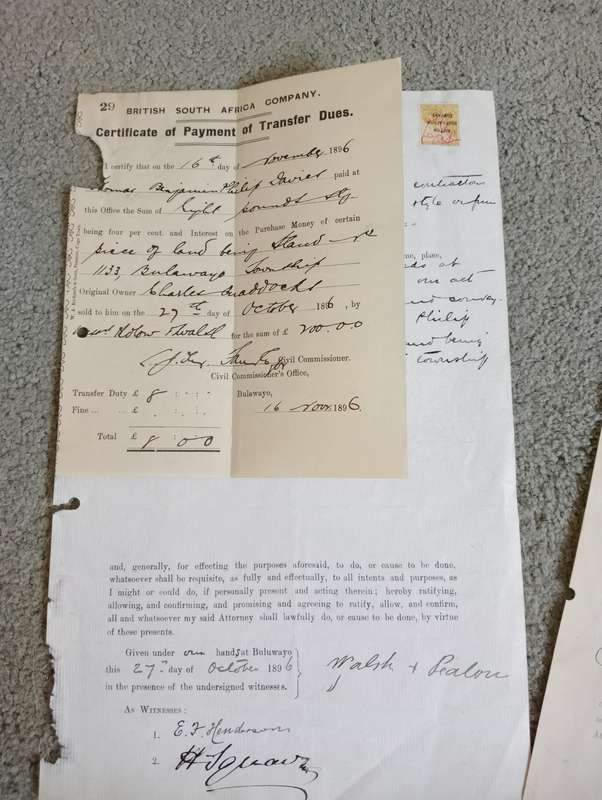 29 BRITISH SOUTH AFRICA COMPANY.
Certificate of Payment of Transfer Dues.
I certify that on the 16th day of November 1896
Thomas Benjamin Philip Davies paid at
this Office the Sum of Eight pounds stg
being four per cent. and Interest on the Purchase Money of certain
piece of land being Stand No
1133, Bulawayo Township
Original Owner Charles Craddock
sold to him on the 27th day of October 1896, by
for the sum of £ 200.0.0
Civil Commissioner.
Civil Commissioner's Office,
Transfer Duty £ 8
Bulawayo,
Fine £
16 Novr 1896.
Total £ 8 : 0 0
contraction
style or firm
me, place,
at
our act
Philip
being
township
and, generally, for effecting the purposes aforesaid, to do, or cause to be done,
whatsoever shall be requisite, as fully and effectually, to all intents and purposes, as
I might or could do, if personally present and acting therein; hereby ratifying,
allowing, and confirming, and promising and agreeing to ratify, allow, and confirm,
all and whatsoever my said Attorney shall lawfully do, or cause to be done, by virtue
of these presents.
Given under our hands at Buluwayo
this 27th day of October 1896
in the presence of the undersigned witnesses.
Walsh +
AS WITNESSES:
1. E. F. Henderson
2.